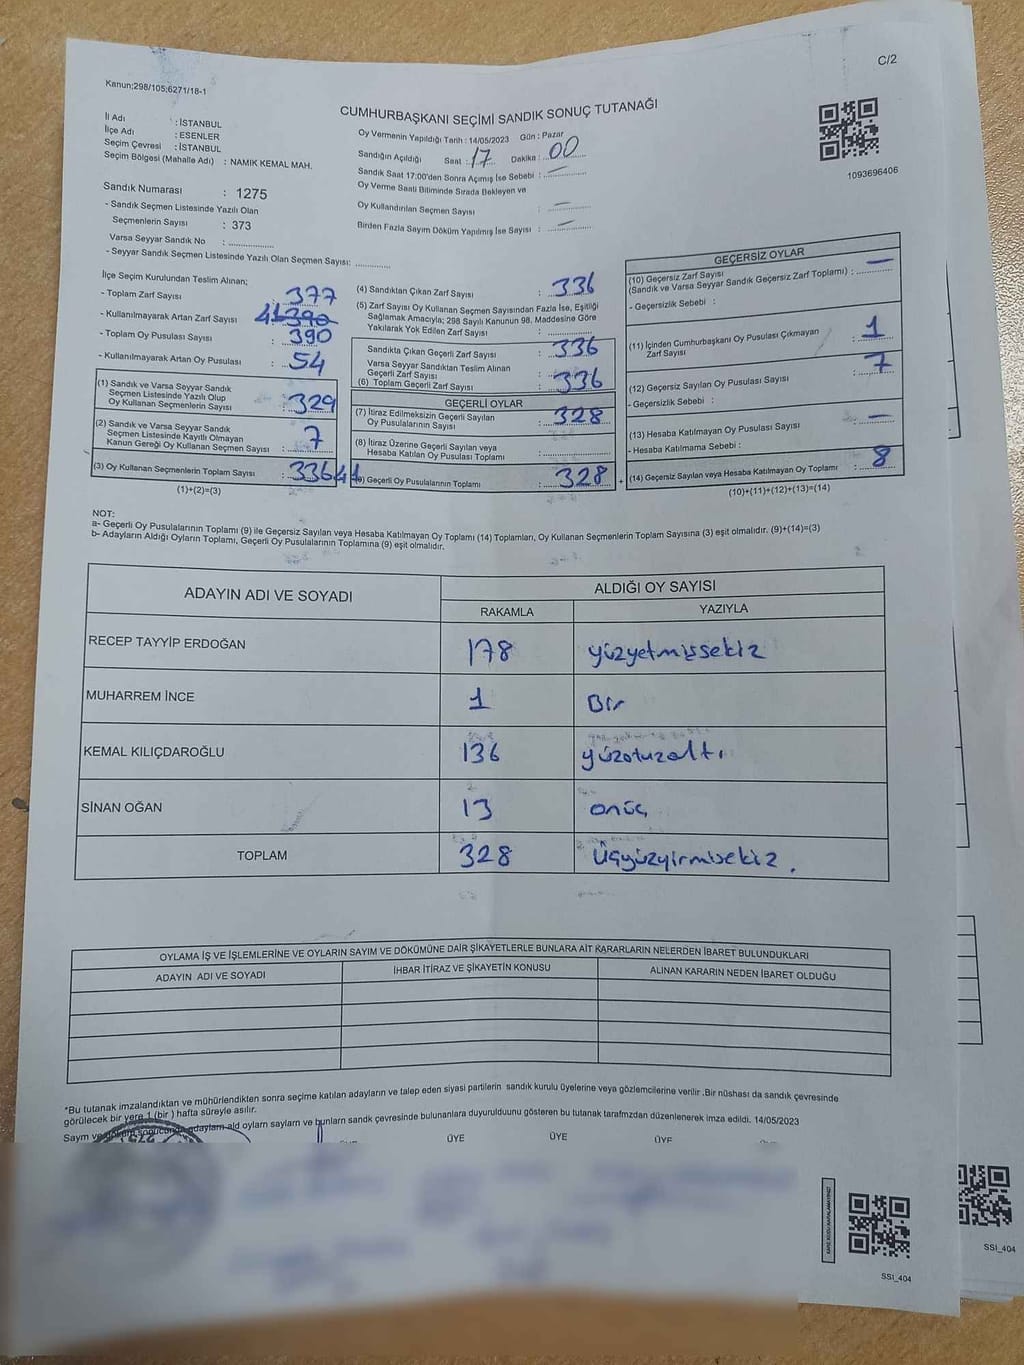 C/2
Kanun;298/105;6271/18-1
CUMHURBAŞKANI SEÇİMİ SANDIK SONUÇ TUTANAĞI
1093696406
İl Adı : İSTANBUL
İlçe Adı : ESENLER
Seçim Çevresi : İSTANBUL
Seçim Bölgesi (Mahalle Adı) : NAMIK KEMAL MAH.
Sandık Numarası : 1275
- Sandık Seçmen Listesinde Yazılı Olan
Seçmenlerin Sayısı : 373
Varsa Seyyar Sandık No : ..............
- Seyyar Sandık Seçmen Listesinde Yazılı Olan Seçmen Sayısı: ............
Oy Vermenin Yapıldığı Tarih : 14/05/2023 Gün : Pazar
Sandığın Açıldığı Saat : 17 Dakika : 00
Sandık Saat 17:00'den Sonra Açımış İse Sebebi : —
Oy Verme Saati Bitiminde Sırada Bekleyen ve
Oy Kullandırılan Seçmen Sayısı : —
Birden Fazla Sayım Döküm Yapılmış İse Sayısı : —
İlçe Seçim Kurulundan Teslim Alınan;
- Toplam Zarf Sayısı : 377
- Kullanılmayarak Artan Zarf Sayısı 41 390
- Toplam Oy Pusulası Sayısı : 390
- Kullanılmayarak Artan Oy Pusulası : 54
(1) Sandık ve Varsa Seyyar Sandık
Seçmen Listesinde Yazılı Olup
Oy Kullanan Seçmenlerin Sayısı : 329
(2) Sandık ve Varsa Seyyar Sandık
Seçmen Listesinde Kayıtlı Olmayan
Kanun Gereği Oy Kullanan Seçmen Sayısı : 7
(3) Oy Kullanan Seçmenlerin Toplam Sayısı : 336
(1)+(2)=(3)
(4) Sandıktan Çıkan Zarf Sayısı : 336
(5) Zarf Sayısı Oy Kullanan Seçmen Sayısından Fazla İse, Eşitliği
Sağlamak Amacıyla; 298 Sayılı Kanunun 98. Maddesine Göre
Yakılarak Yok Edilen Zarf Sayısı : ............
Sandıkta Çıkan Geçerli Zarf Sayısı : 336
Varsa Seyyar Sandıktan Teslim Alınan
Geçerli Zarf Sayısı
(6) Toplam Geçerli Zarf Sayısı : 336
GEÇERLİ OYLAR
(7) İtiraz Edilmeksizin Geçerli Sayılan
Oy Pusulalarının Sayısı : 328
(8) İtiraz Üzerine Geçerli Sayılan veya
Hesaba Katılan Oy Pusulası Toplamı : ............
(9) Geçerli Oy Pusulalarının Toplamı : 328
GEÇERSİZ OYLAR
(10) Geçersiz Zarf Sayısı
(Sandık ve Varsa Seyyar Sandık Geçersiz Zarf Toplamı) : —
- Geçersizlik Sebebi :
(11) İçinden Cumhurbaşkanı Oy Pusulası Çıkmayan
Zarf Sayısı : 1
(12) Geçersiz Sayılan Oy Pusulası Sayısı : 7
- Geçersizlik Sebebi :
(13) Hesaba Katılmayan Oy Pusulası Sayısı : —
- Hesaba Katılmama Sebebi :
(14) Geçersiz Sayılan veya Hesaba Katılmayan Oy Toplamı : 8
(10)+(11)+(12)+(13)=(14)
NOT:
a- Geçerli Oy Pusulalarının Toplamı (9) ile Geçersiz Sayılan veya Hesaba Katılmayan Oy Toplamı (14) Toplamları, Oy Kullanan Seçmenlerin Toplam Sayısına (3) eşit olmalıdır. (9)+(14)=(3)
b- Adayların Aldığı Oyların Toplamı, Geçerli Oy Pusulalarının Toplamına (9) eşit olmalıdır.
ADAYIN ADI VE SOYADI ALDIĞI OY SAYISI
RAKAMLA YAZIYLA
RECEP TAYYİP ERDOĞAN 178 yüzyetmişsekiz
MUHARREM İNCE 1 Bir
KEMAL KILIÇDAROĞLU 136 yüzotuzaltı
SİNAN OĞAN 13 onüç
TOPLAM 328 üçyüzyirmisekiz.
OYLAMA İŞ VE İŞLEMLERİNE VE OYLARIN SAYIM VE DÖKÜMÜNE DAİR ŞİKAYETLERLE BUNLARA AİT KARARLARIN NELERDEN İBARET BULUNDUKLARI
ADAYIN ADI VE SOYADI İHBAR İTİRAZ VE ŞİKAYETİN KONUSU ALINAN KARARIN NEDEN İBARET OLDUĞU
*Bu tutanak imzalandıktan ve mühürlendikten sonra seçime katılan adayların ve talep eden siyasi partilerin sandık kurulu üyelerine veya gözlemcilerine verilir .Bir nüshası da sandık çevresinde
görülecek bir yere 1 (bir ) hafta süreyle asılır.
Sayım ve döküm sonucunda adayların ald oyların sayların ve bunların sandk çevresinde bulunanlara duyurulduunu gösteren bu tutanak tarafmzdan düzenlenerek imza edildi. 14/05/2023
ÜYE ÜYE ÜYE ÜYE
SSİ_404
SSİ_404